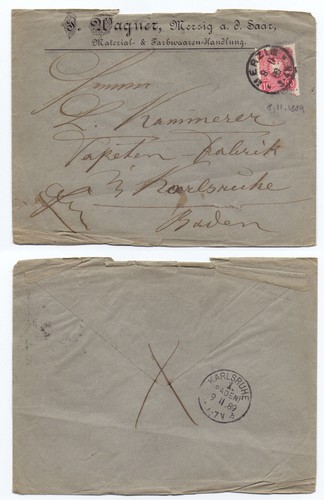 J. Wagner, Merzig a. d. Saar,
Material- & Farbwaaren-Handlung.
MERZIG
8 11 89
8.11.1889
Herrn
L. Kammerer
Tapeten-Fabrik
in Karlsruhe
Baden
KARLSRUHE
1.
(BADEN)
9 11 89